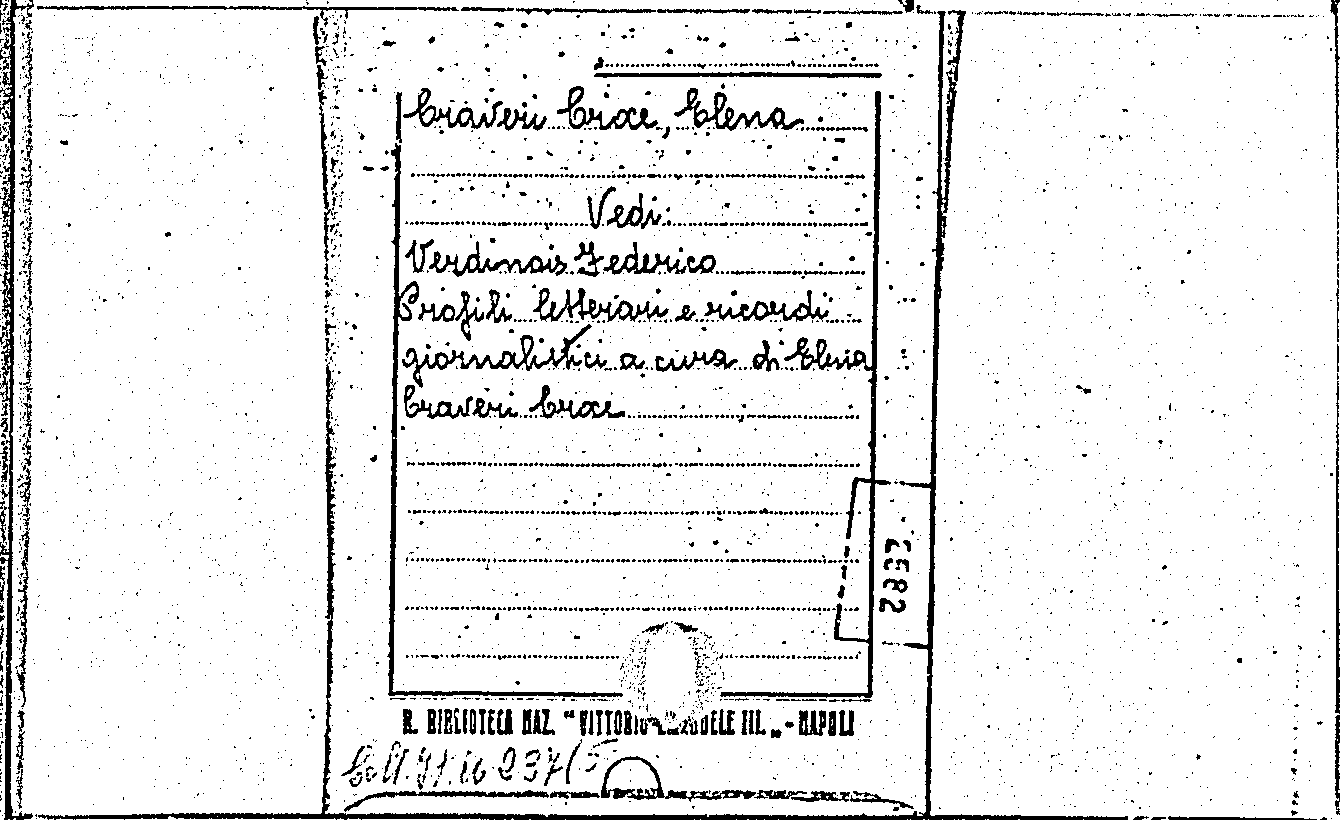 Craveri Croce, Elena
Vedi:
Verdinois Federico
Profili letterari e ricordi
giornalistici a cura di Elena
Craveri Croce
R. BIBLIOTECA NAZ. "VITTORIO EMANUELE III. „ - NAPOLI